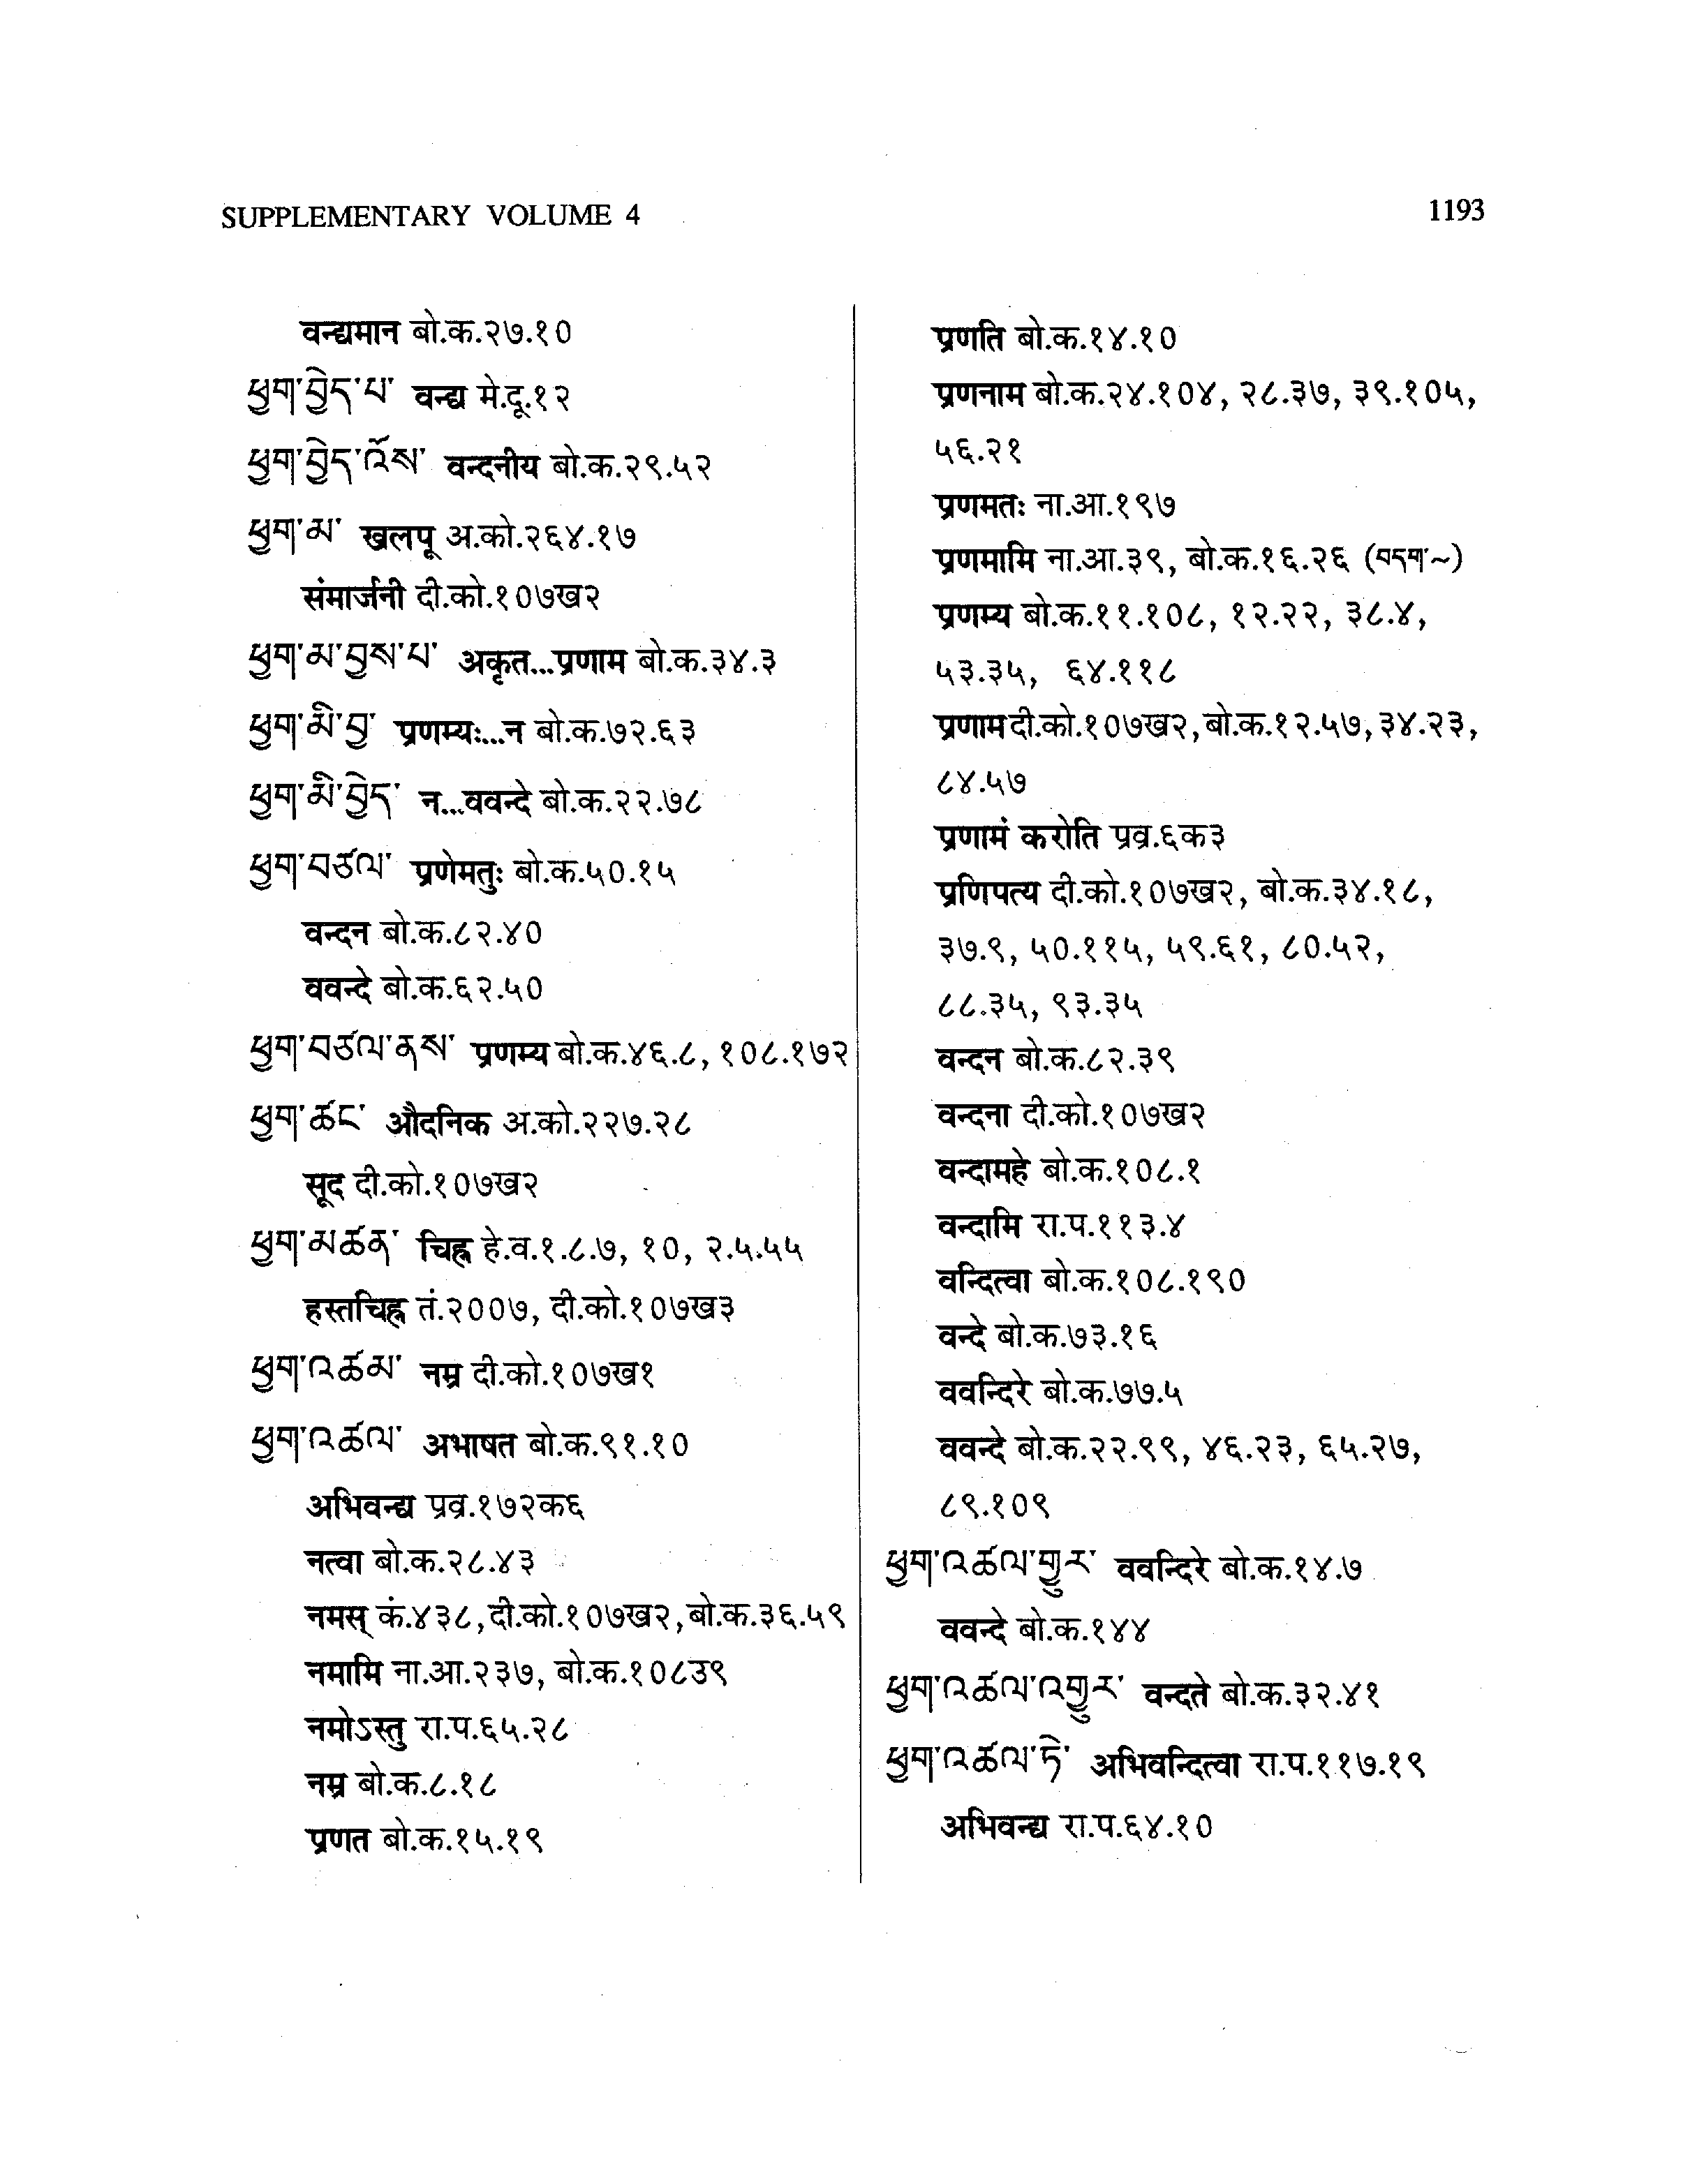 SUPPLEMENTARY VOLUME 4
1193
वन्द्यमान बो.क.२७.१०
ཕྱག་བྱེད་པ་ वन्द्य मे.दू.१२
ཕྱག་བྱེད་འོས་ वन्दनीय बो.क.२९.५२
ཕྱག་མ་ खलपू अ.को.२६४.१७
संमार्जनी दी.को.१०७ख२
ཕྱག་མ་བྱས་པ་ अकृत...प्रणाम बो.क.३४.३
ཕྱག་མི་བྱ་ प्रणम्यः...न बो.क.७२.६३
ཕྱག་མི་བྱེད་ न...ववन्दे बो.क.२२.७८
ཕྱག་བཙལ་ प्रणेमतुः बो.क.५०.१५
वन्दन बो.क.८२.४०
ववन्दे बो.क.६२.५०
ཕྱག་བཙལ་ནས་ प्रणम्य बो.क.४६.८, १०८.१७२
ཕྱག་ཚང་ औदनिक अ.को.२२७.२८
सूद दी.को.१०७ख२
ཕྱག་མཚན་ चिह्न हे.व.१.८.७, १०, २.५.५५
हस्तचिह्न तं.२००७, दी.को.१०७ख३
ཕྱག་འཚམ་ नम्र दी.को.१०७ख१
ཕྱག་འཚལ་ अभाषत बो.क.९१.१०
अभिवन्द्य प्रव्र.१७२क६
नत्वा बो.क.२८.४३
नमस् कं.४३८, दी.को.१०७ख२, बो.क.३६.५९
नमामि ना.आ.२३७, बो.क.१०८उ९
नमोऽस्तु रा.प.६५.२८
नम्र बो.क.८.१८
प्रणत बो.क.१५.१९
प्रणति बो.क.१४.१०
प्रणनाम बो.क.२४.१०४, २८.३७, ३९.१०५,
५६.२१
प्रणमतः ना.आ.१९७
प्रणमामि ना.आ.३९, बो.क.१६.२६ (བདག་~)
प्रणम्य बो.क.११.१०८, १२.२२, ३८.४,
५३.३५, ६४.११८
प्रणाम दी.को.१०७ख२, बो.क.१२.५७, ३४.२३,
८४.५७
प्रणामं करोति प्रव्र.६क३
प्रणिपत्य दी.को.१०७ख२, बो.क.३४.१८,
३७.९, ५०.११५, ५९.६१, ८०.५२,
८८.३५, ९३.३५
वन्दन बो.क.८२.३९
वन्दना दी.को.१०७ख२
वन्दामहे बो.क.१०८.१
वन्दामि रा.प.११३.४
वन्दित्वा बो.क.१०८.१९०
वन्दे बो.क.७३.१६
ववन्दिरे बो.क.७७.५
ववन्दे बो.क.२२.९९, ४६.२३, ६५.२७,
८९.१०९
ཕྱག་འཚལ་གྱུར་ ववन्दिरे बो.क.१४.७
ववन्दे बो.क.१४४
ཕྱག་འཚལ་འགྱུར་ वन्दते बो.क.३२.४१
ཕྱག་འཚལ་ཏེ་ अभिवन्दित्वा रा.प.११७.१९
अभिवन्द्य रा.प.६४.१०